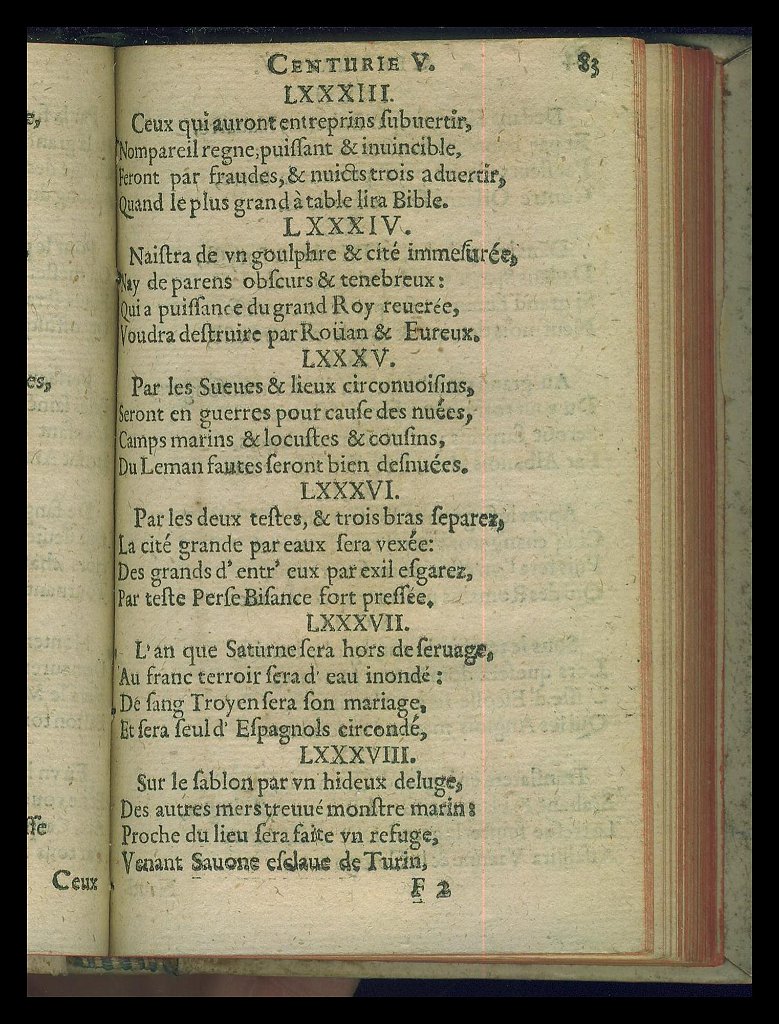 e,
es,
ſſe
Ceux
CENTURIE V. 83
LXXXIII.
Ceux qui auront entreprins ſubuertir,
Nompareil regne, puiſſant & inuincible,
Feront par fraudes, & nuicts trois aduertir,
Quand le plus grand à table lira Bible.
LXXXIV.
Naiſtra de vn goulphre & cité immeſurée,
Nay de parens obſcurs & tenebreux:
Qui a puiſſance du grand Roy reuerée,
Voudra deſtruire par Roüan & Eureux.
LXXXV.
Par les Sueues & lieux circonuoiſins,
Seront en guerres pour cauſe des nuées,
Camps marins & locuſtes & couſins,
Du Leman fautes ſeront bien deſnuées.
LXXXVI.
Par les deux teſtes, & trois bras ſeparez,
La cité grande par eaux ſera vexée:
Des grands d' entr' eux par exil eſgarez,
Par teſte Perſe Biſance fort preſſée.
LXXXVII.
L'an que Saturne ſera hors de ſeruage,
Au franc terroir ſera d' eau inondé:
De ſang Troyen ſera ſon mariage,
Et ſera ſeul d' Eſpagnols circondé,
LXXXVIII.
Sur le ſablon par vn hideux deluge,
Des autres mers treuué monſtre marin:
Proche du lieu ſera faite vn refuge,
Venant Sauone eſclaue de Turin,
F 2